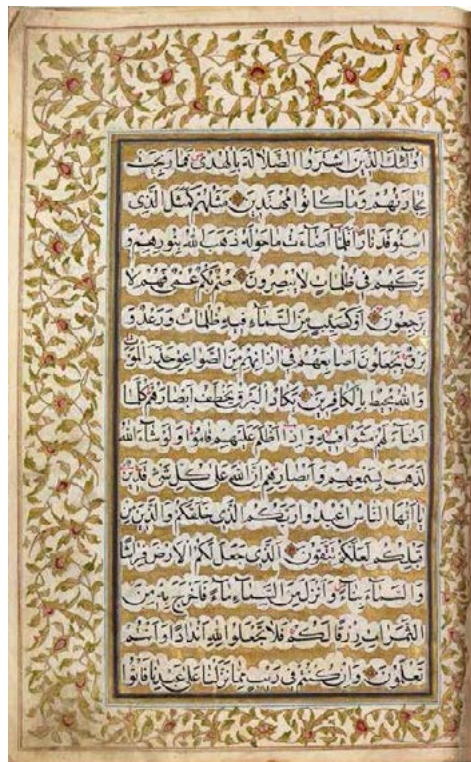 اولئك الذين اشتروا الضلالة بالهدى فما ربحت
تجارتهم وما كانوا مهتدين مثلهم كمثل الذى
استوقد نارا فلما اضاءت ما حوله ذهب الله بنورهم و
تركهم فى ظلمات لا يبصرون صم بكم عمى فهم لا
يرجعون او كصيب من السماء فيه ظلمات ورعد و
برق يجعلون اصابعهم فى اذانهم من الصواعق حذر الموت
والله محيط بالكافرين يكاد البرق يخطف ابصارهم كلما
اضاء لهم مشوا فيه واذا اظلم عليهم قاموا ولو شاء الله
لذهب بسمعهم وابصارهم ان الله على كل شئ قدير
يا ايها الناس اعبدوا ربكم الذى خلقكم والذين من
قبلكم لعلكم تتقون الذى جعل لكم الارض فراشا
والسماء بناء وانزل من السماء ماء فاخرج به من
الثمرات رزقا لكم فلا تجعلوا لله اندادا وانتم
تعلمون وان كنتم فى ريب مما نزلنا على عبدنا فاتوا